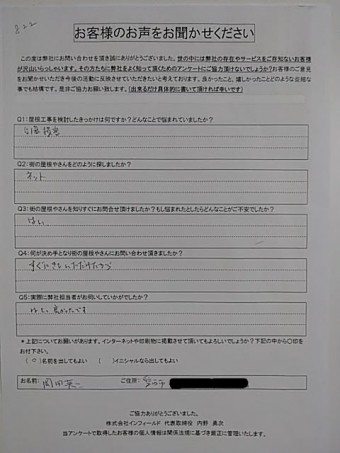 822
お客様のお声をお聞かせください
この度は弊社にお問い合わせを頂き誠にありがとうございます。世の中には弊社の存在やサービスをご存知ないお客様
が沢山いらっしゃいます。その方たちに弊社をよく知って頂くためのアンケートにご協力頂けないでしょうか?お客様のご意見
をお聞かせいただき今後の活動に反映させていただきたいと考えております。良かったこと、嬉しかったことどのような些細な
事でも結構です。是非ご協力お願い致します。(出来るだけ具体的に書いて頂ければ幸いです)
Q1:屋根工事を検討したきっかけは何ですか?どんなことで悩まれていましたか?
台風被害
Q2:街の屋根やさんをどのように探しましたか?
ネット
Q3:街の屋根やさんを知りすぐにお問合せ頂けましたか?もし悩まれたとしたらどんなことがご不安でしたか?
はい
Q4:何が決め手となり街の屋根やさんにお問い合わせ頂きましたか?
すぐにきていただけたから
Q5:実際に弊社担当者がお伺いしていかがでしたか?
はい 良かったです
*上記についてお願いがあります。インターネットや印刷物に掲載させて頂いてもよろしいでしょうか?下記の中から○印を
お付け下さい。
(○)名前を出してもよい ( )イニシャルなら出してもよい
お名前: 岡田 ご住所:
ご協力ありがとうございました。
株式会社インフィールド 代表取締役 内野 勇次
当アンケートで取得したお客様の個人情報は関係法規に基づき厳正に管理いたします。